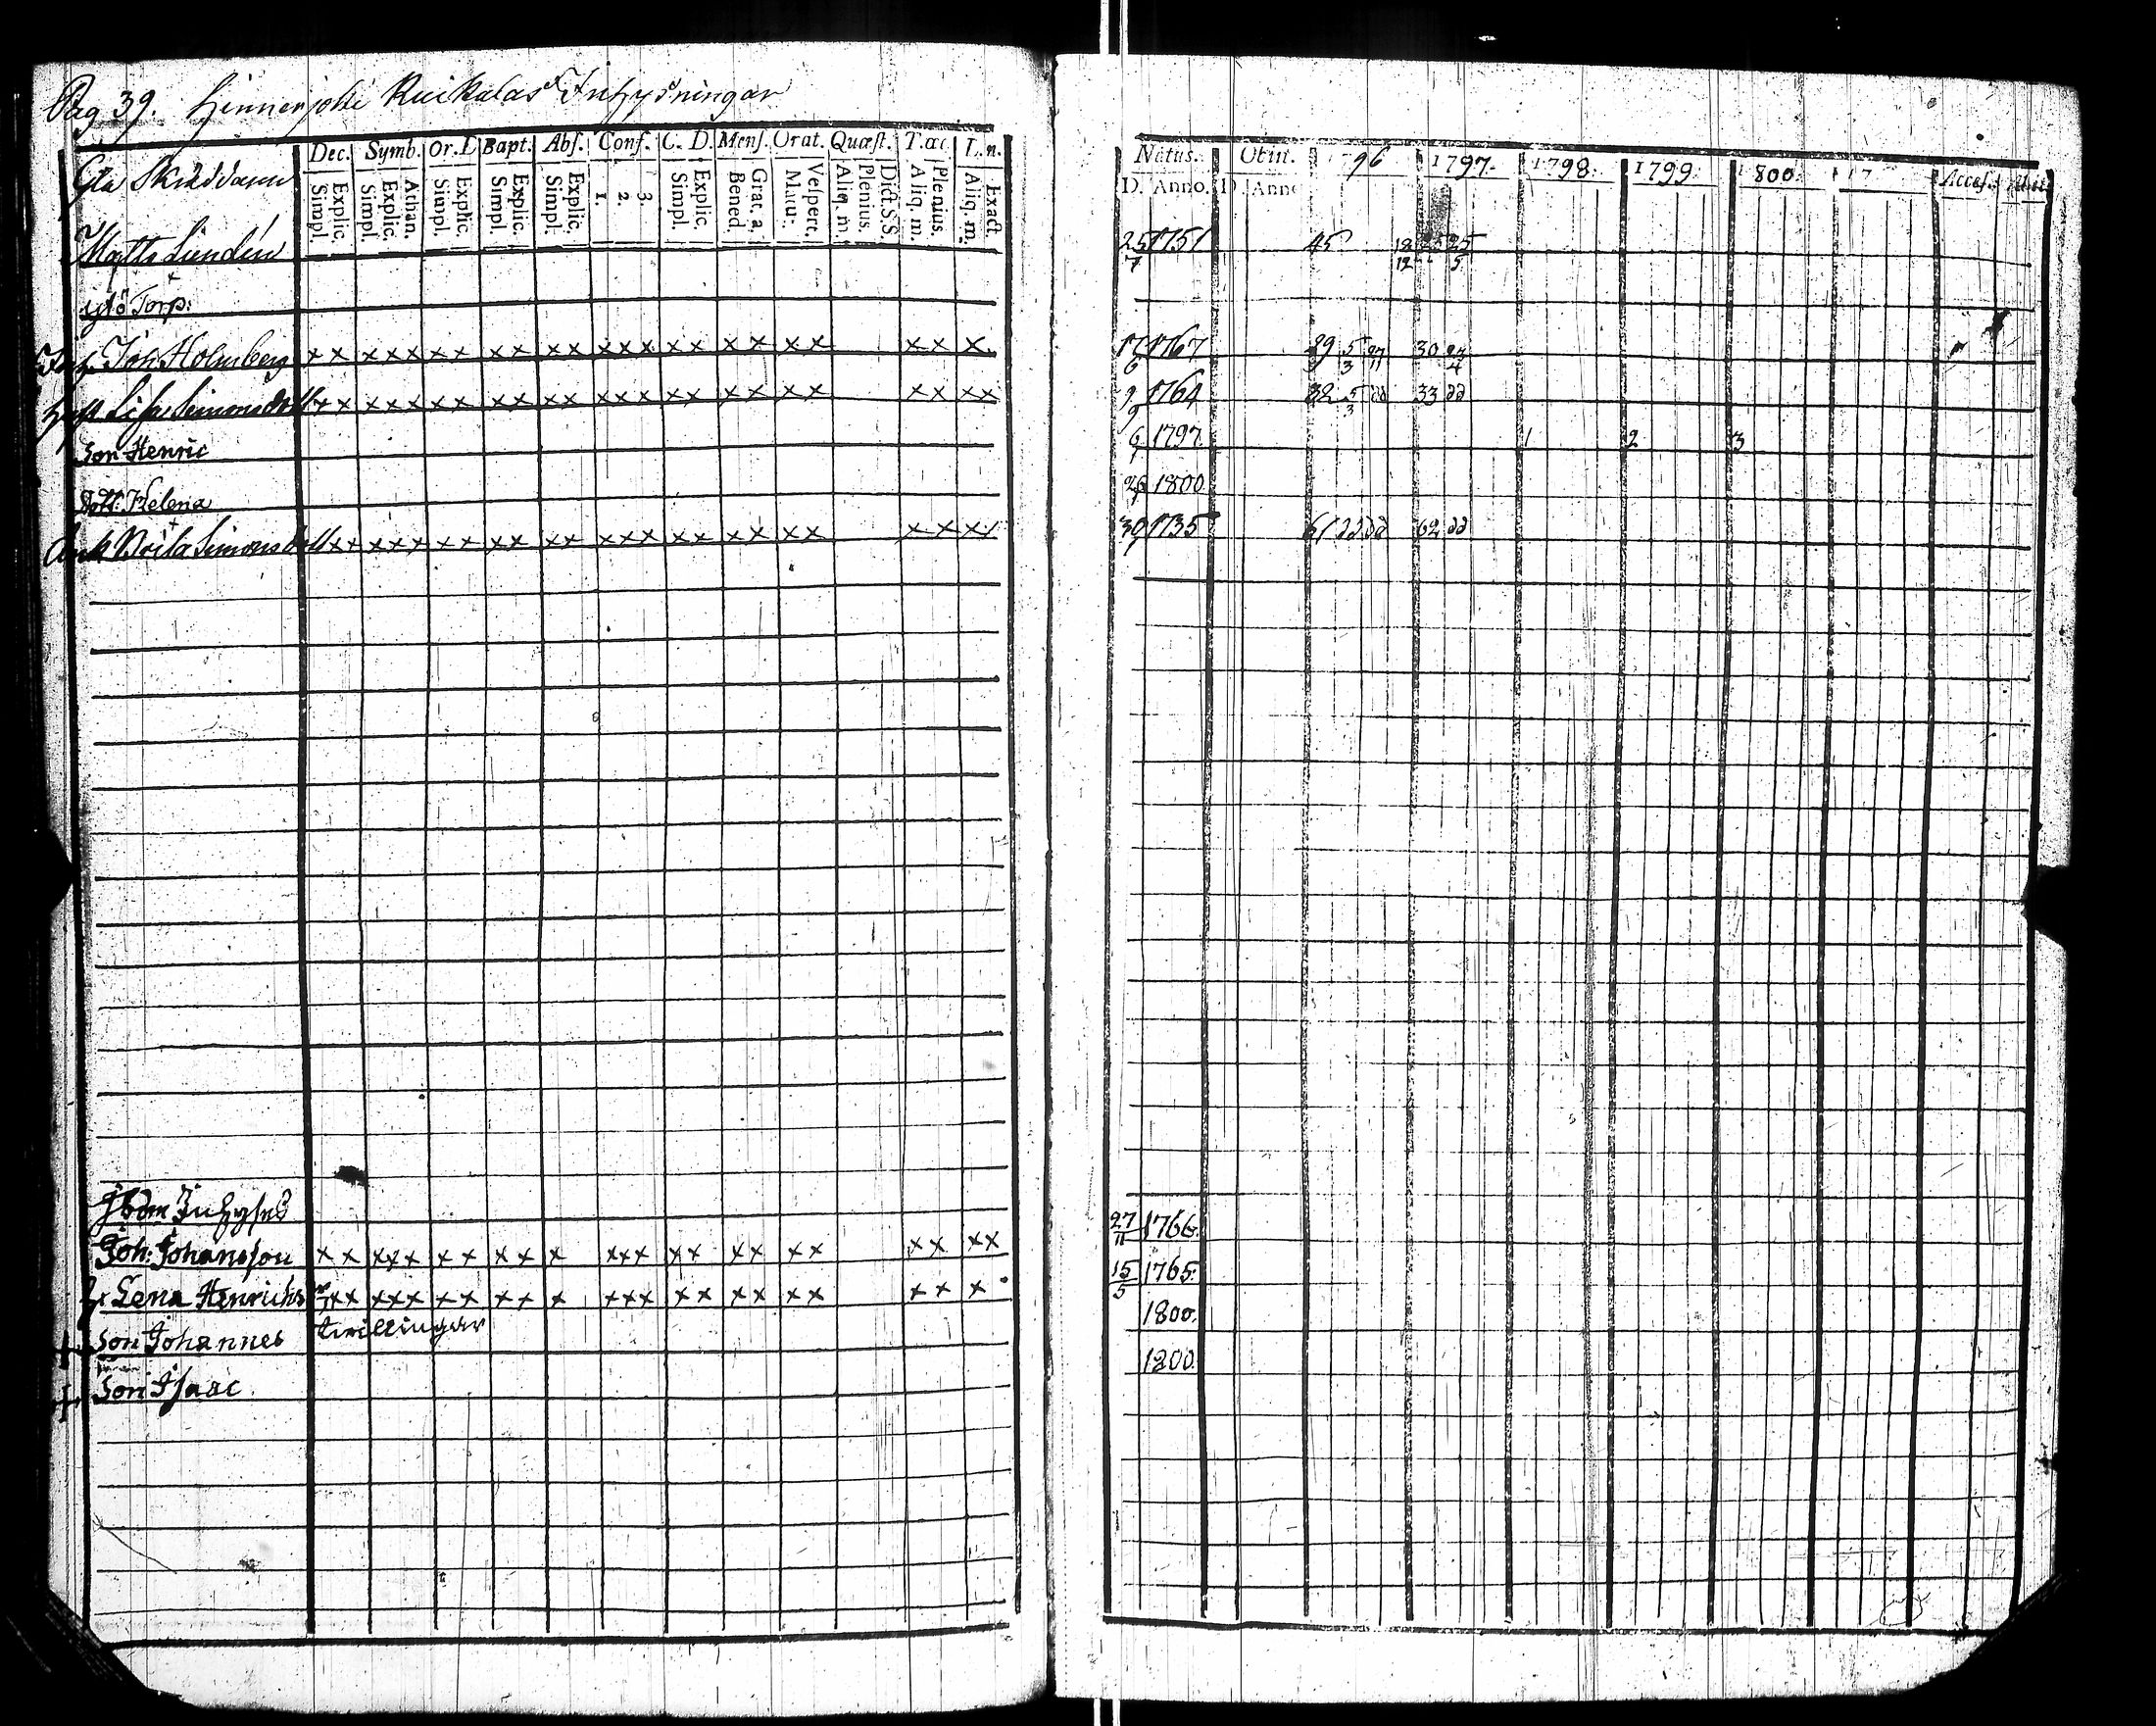 Pag 39. Hinnerjoki Ruikalas Inhysningar
Dec. Symb. Or. D Bapt. Abs. Conf. C. D. Mens. Orat. Quæst. T. œc L. n. Natus. Obiit. 1796 1797. 1798. 1799. 1800. 17 Access. Abiit
Simpl. Explic. Simpl. Explic. Athan. Simpl. Explic. Simpl. Explic. Simpl. Explic. 1. 2. 3. Simpl. Explic. Bened. Grat. a. Matu. Vespert. Aliq. m. Plenius. Dict. S.S. Aliq. m. Plenius. Aliq. m. Exact D. Anno. D. Anno
Gla Skräddaren
Matts Lindén 25/7 1751 45 18/12 25/5
Torp:
Inh. Joh. Holmberg x x x x x x x x x x x x x x x x x x x x x x 17/6 1767 29 5/3 27/11 30 23/4
Hust. Lisa Simonsdotter x x x x x x x x x x x x x x x x x x x x x x x 9/9 1764 32 5/3 dd 33 dd
Son Henric 6/1 1797 1 2 3
Dott. Helena 26/1 1800
Enk. Brita Simonsdotter x x x x x x x x x x x x x x x x x x x x x x x 30 1735 61 dd dd 62 dd
Ibdm Inhyses
Joh: Johansson x x x x x x x x x x x x x x x x x x x x x x 27/11 1766.
H. Lena Henrichs x x x x x x x x x x x x x x x x x x x x x 15/5 1765.
Son Johannes tvillingar 1800.
Son Isaac 1800.